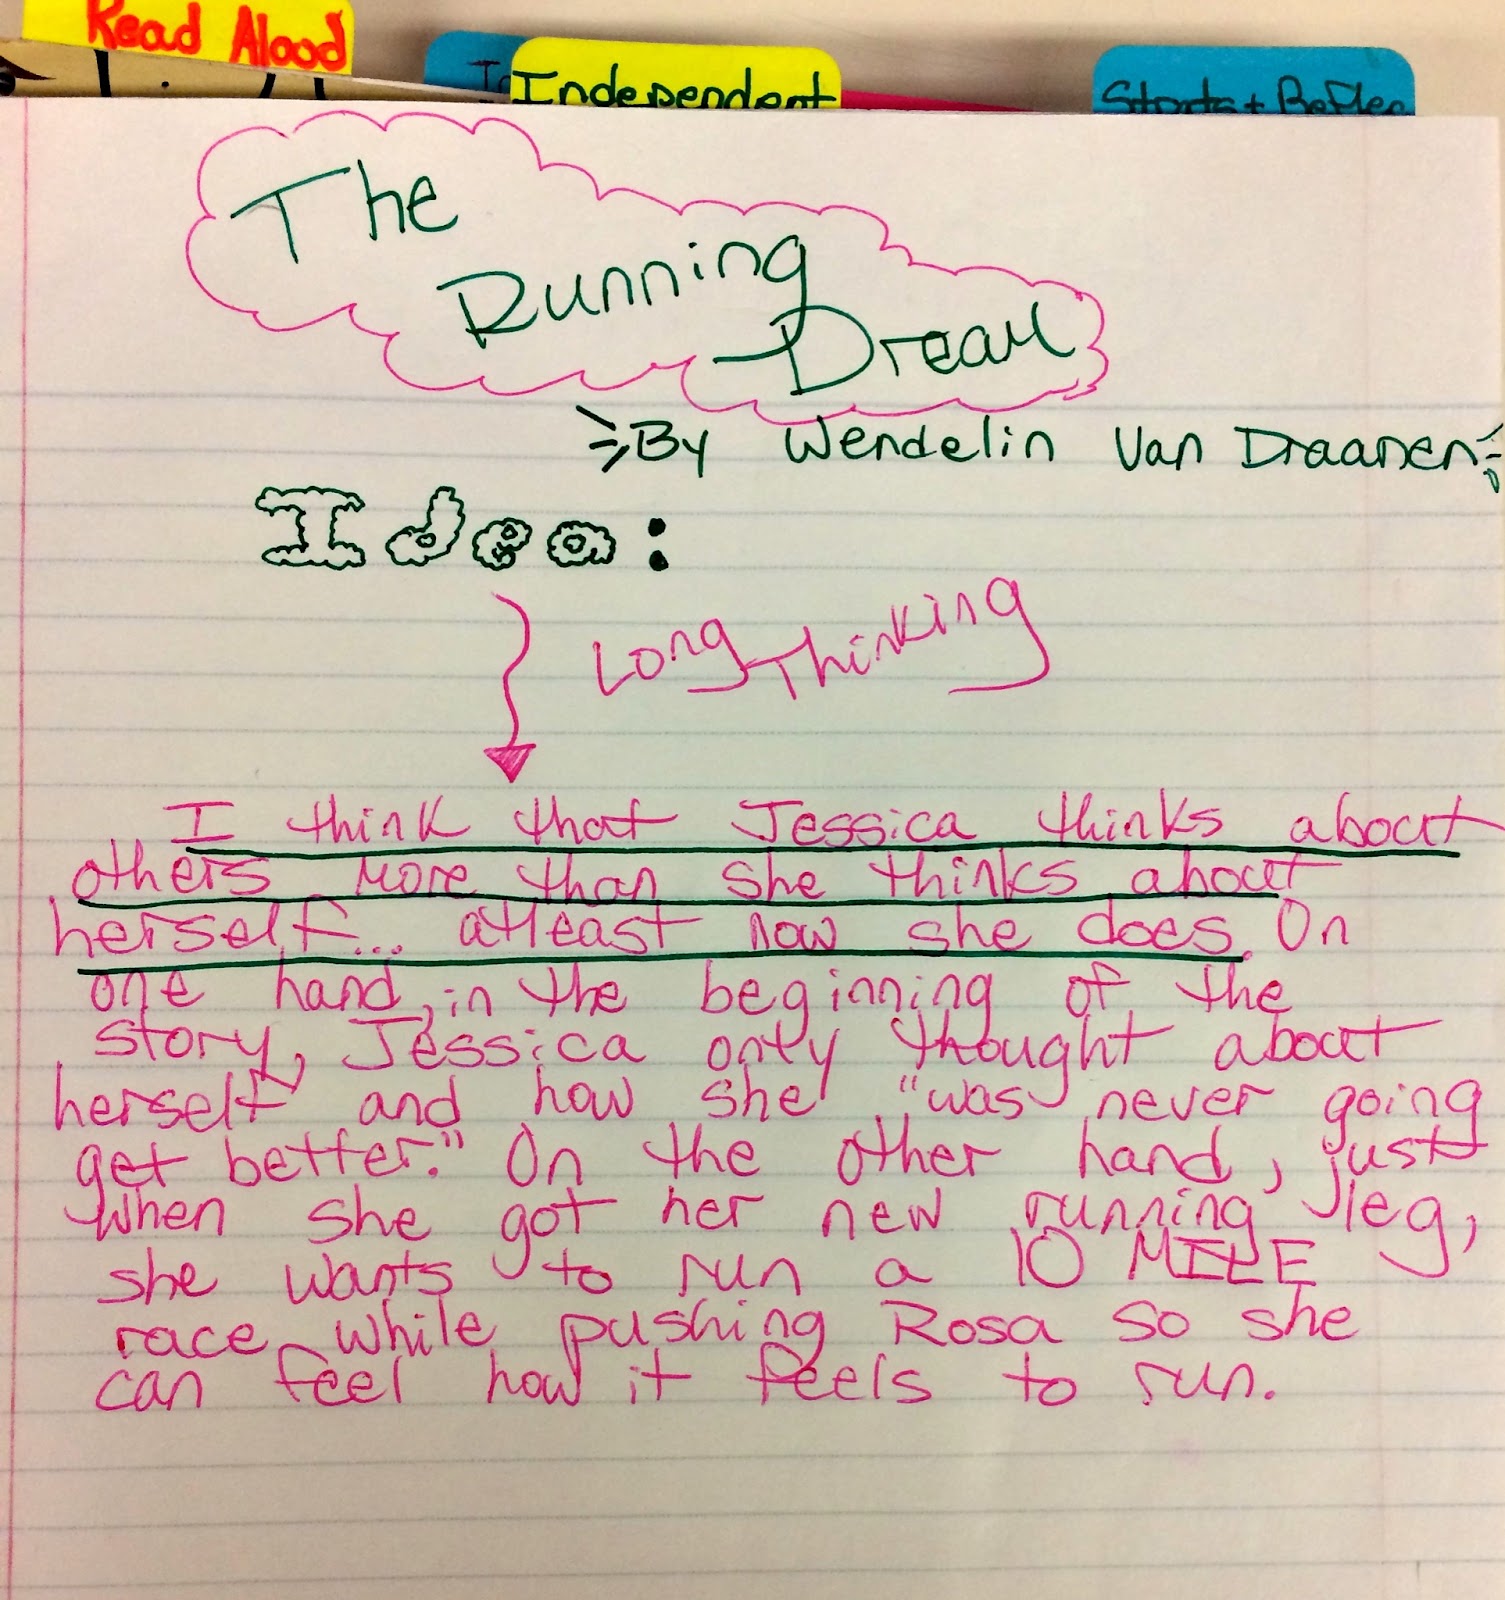 Read Alood
Independent
The
Running
Dream
By Wendelin Van Draanen
Idea:
Long Thinking
I think that Jessica thinks about
others more than she thinks about
herself... atleast now she does. On
one hand, in the beginning of the
story, Jessica only thought about
herself and how she "was never going
get better." On the other hand, just
when she got her new running leg,
she wants to run a 10 MILE
race while pushing Rosa so she
can feel how it feels to run.